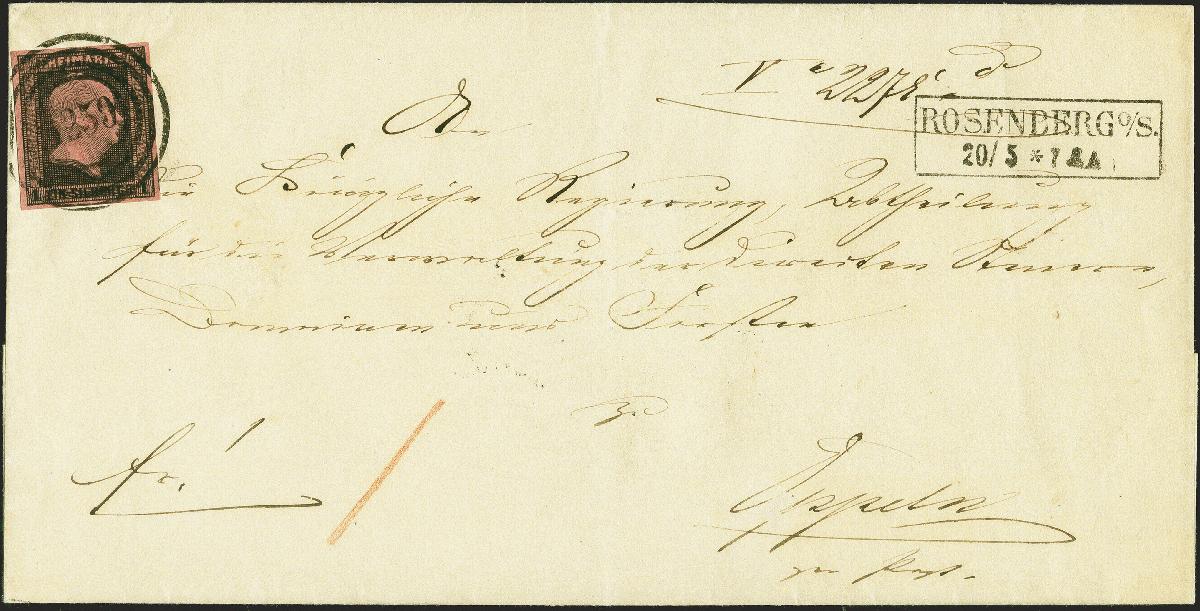 FREIMARKE
250
V 2278
ROSENBERG O/S.
20/5 * 7
An
Königliche Regierung, Abtheilung
für die Verwaltung der directen Steuern,
Domainen und Forsten
zu
fr. 1
Oppeln